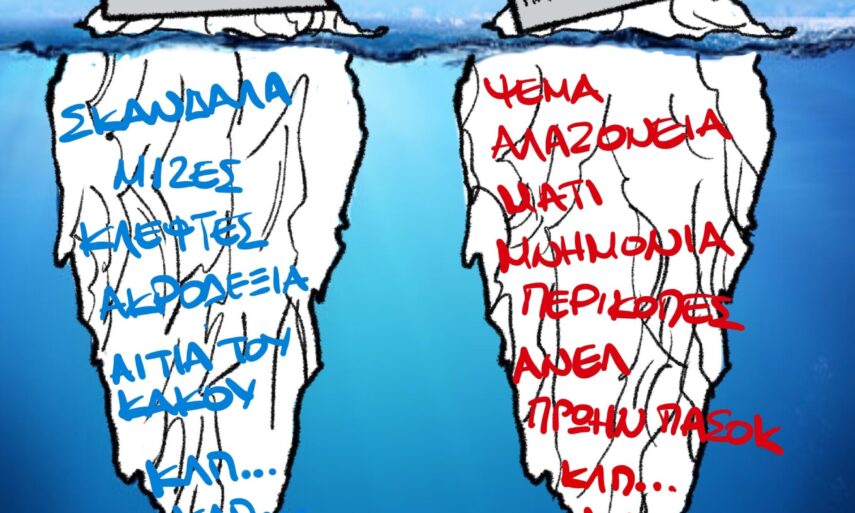 ΣΚΑΝΔΑΛΑ
ΜΙΖΕΣ
ΚΛΕΦΤΕΣ
ΑΚΡΟΔΕΞΙΑ
ΑΙΤΙΑ ΤΟΥ
ΚΑΚΟΥ
ΚΛΠ...
ΨΕΜΑ
ΑΛΑΖΟΝΕΙΑ
ΜΑΤΙ
ΜΝΗΜΟΝΙΑ
ΠΕΡΙΚΟΠΕΣ
ΑΝΕΛ
ΠΡΩΗΝ ΠΑΣΟΚ
ΚΛΠ...